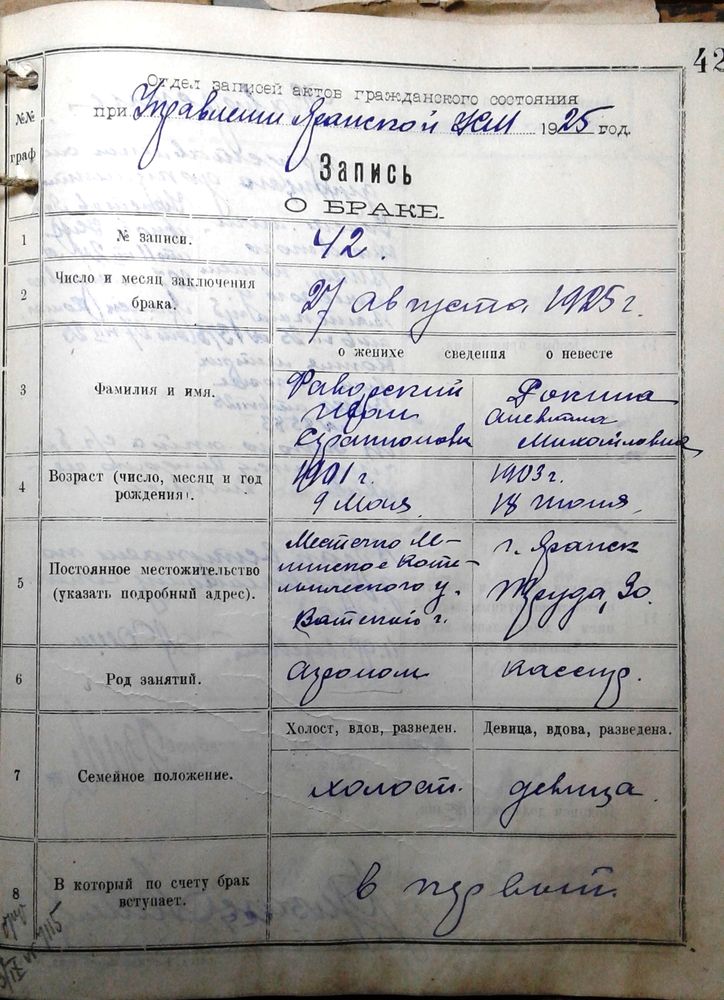 42
Отдел записей актов гражданского состояния
при Управлении Яранской УКМ 1925 год.
№№
граф
Запись
О БРАКЕ.
1 № записи. 42.
2 Число и месяц заключения брака. 27 августа 1925 г.
о женихе сведения о невесте
3 Фамилия и имя.
Фаворский
Иван
Серапионович
Рокина
Михайловна
4 Возраст (число, месяц и год рождения).
1901 г.
9 Мая
1903 г.
18 июня
5 Постоянное местожительство (указать подробный адрес).
Местечко
Котельнического у.
Вятской г.
г. Яранск
Труда, 30.
6 Род занятий. агроном кассир.
Холост, вдов, разведен. Девица, вдова, разведена.
7 Семейное положение. холост. девица
8 В который по счету брак вступает. в первый.